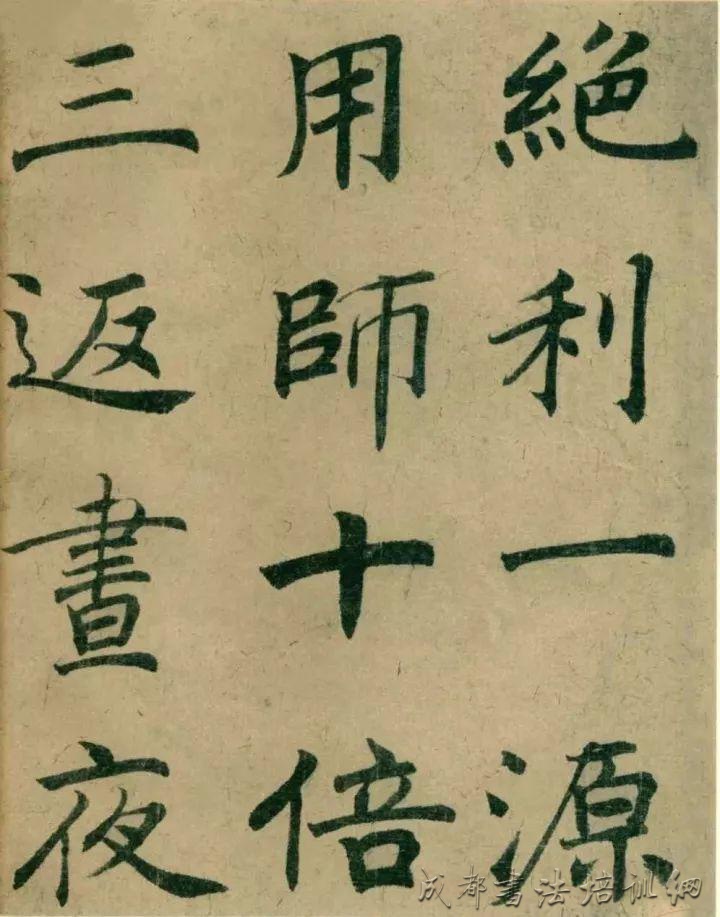 絕利一源
用師十倍
三返晝夜
成都书法培训网